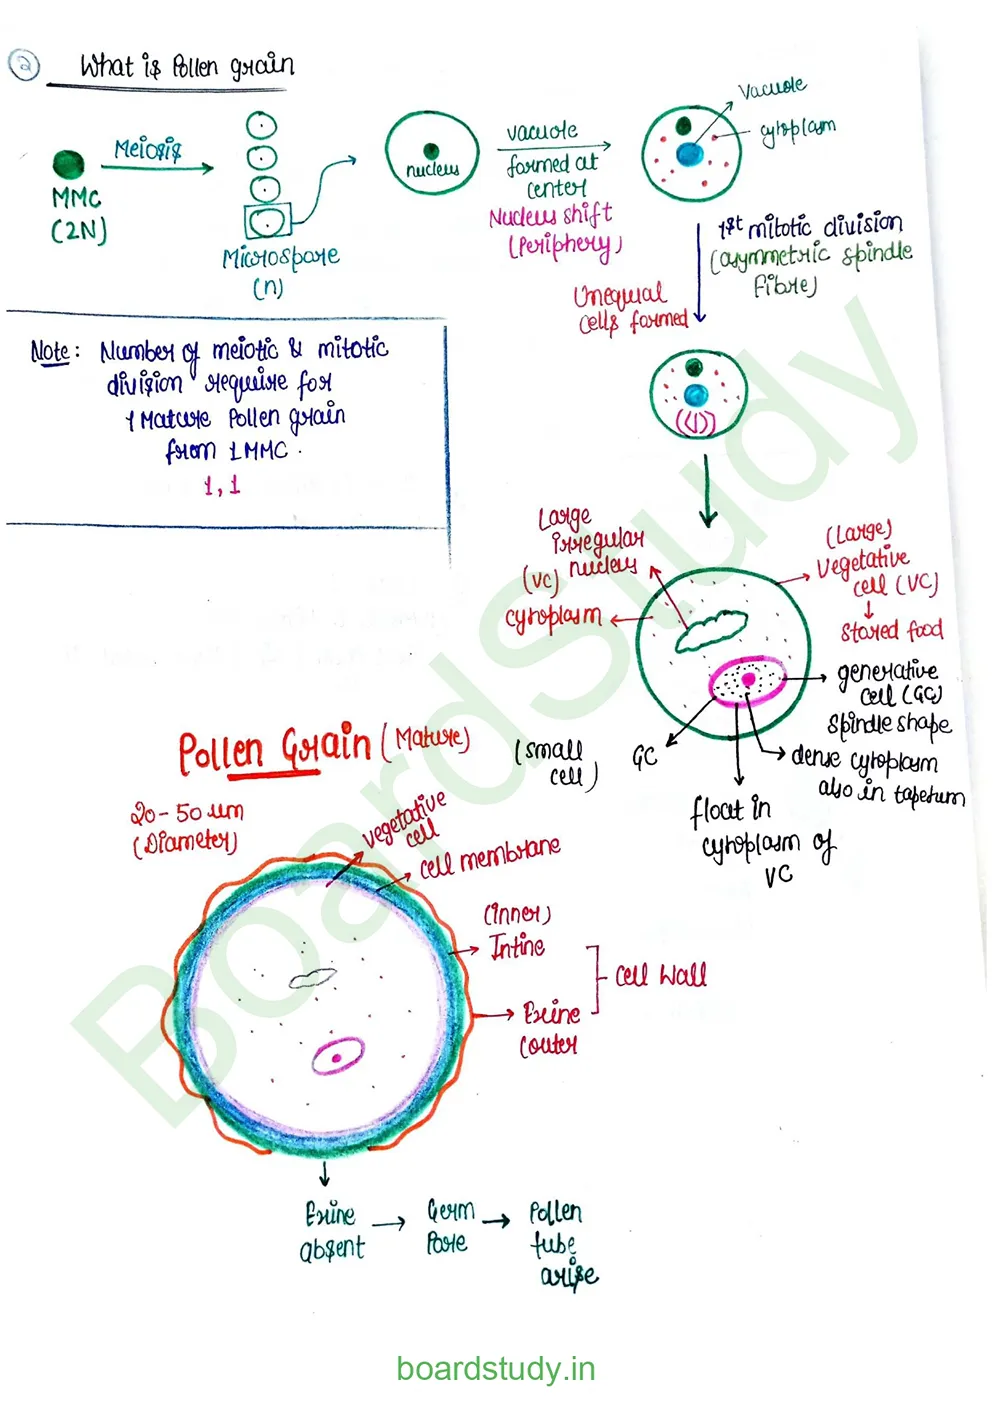 2 What is Pollen grain
MMC
(2N)
Meiosis
Microspore
(n)
nucleus
vacuole
formed at
center
Nucleus shift
(Periphery)
Vacuole
cytoplasm
1st mitotic division
(asymmetric spindle
fibre)
Unequal
cells formed
Note: Number of meiotic & mitotic
division require for
1 Mature Pollen grain
from 1 MMC.
1, 1
Large
irregular
nucleus
(VC)
cytoplasm
(Large)
Vegetative
cell (VC)
↓
stored food
generative
cell (GC)
spindle shape
dense cytoplasm
also in tapetum
GC
(small
cell)
float in
cytoplasm of
VC
Pollen Grain (Mature)
20-50 um
(Diameter)
vegetative
cell
cell membrane
(inner)
Intine
Exine
(outer
cell wall
Exine
absent
→ Germ
Pore
→ Pollen
tube
arise
BoardStudy
boardstudy.in